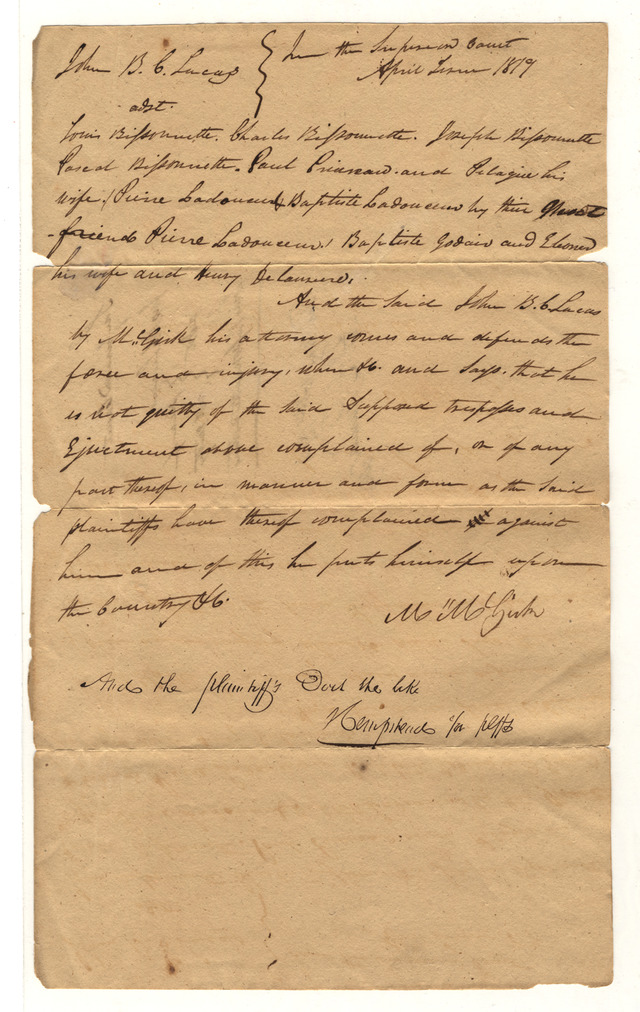 John B. C. Lucas
adst.
In the Superior Court
April Term 1819
Louis Bissonnette. Charles Bissonnette. Joseph Bissonnette
Pascal Bissonnette. Paul Primeau. and Pelagie his
wife, Pierre Ladouceur & Baptiste Ladouceur by their next
friend Pierre Ladouceur, Baptiste Godair and his wife and Henry Delaurere.
And the said John B. C. Lucas
by McGirk his attorney comes and defends the
force and injury, when &c. and says. that he
is not guilty of the said supposed trespass and
Ejectment above complained of, or of any
part thereof, in manner and form as the said
plaintiffs have thereof complained against
him and of this he puts himself upon
the Country &c.
M. McGirk
And the plaintiffs Doth the like
Hempstead for plffs